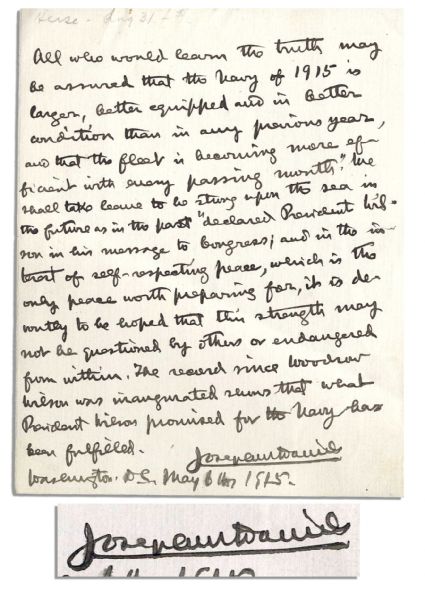 Aug 31
All who would learn the truth may
be assured that the Navy of 1915 is
larger, better equipped and in better
condition than in any previous year,
and that the fleet is becoming more ef-
ficient with every passing month. "We
shall take leave to be strong upon the sea in
the future as in the past" declared President Wil-
son in his message to Congress; and in the in-
terest of self-respecting peace, which is the
only peace worth preparing for, it is de-
voutly to be hoped that this strength may
not be questioned by others or endangered
from within. The record since Woodrow
Wilson was inaugurated shows that what
President Wilson promised for the Navy has
been fulfilled.
Josephus Daniels
Washington. D.C. May 6th 1915.
Josephus Daniels